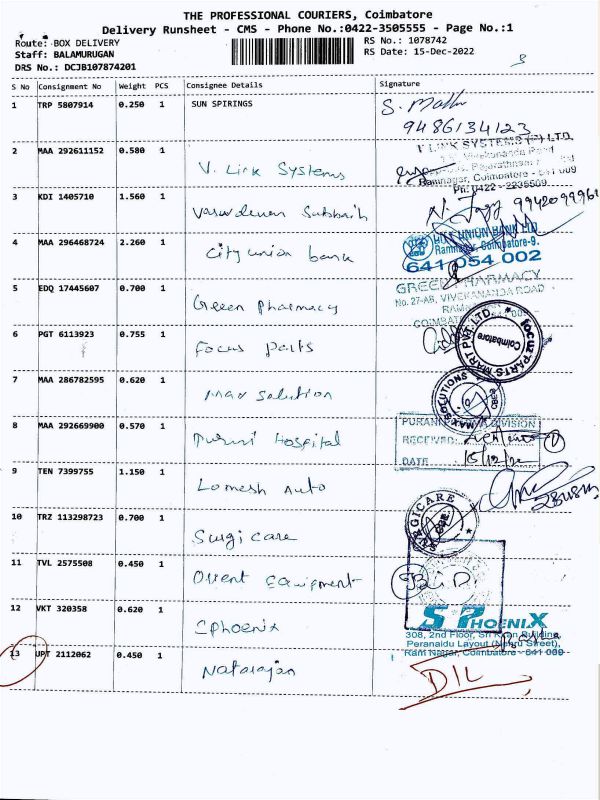 THE PROFESSIONAL COURIERS, Coimbatore
Delivery Runsheet - CMS - Phone No.:0422-3505555 - Page No.:1
Route: BOX DELIVERY
RS No.: 1078742
Staff: BALAMURUGAN
RS Date: 15-Dec-2022
DRS No.: DCJB107874201
S No Consignment No Weight PCS Consignee Details Signature
1 TRP 5807914 0.250 1 SUN SPIRINGS
9486134123
2 MAA 292611152 0.580 1 V. Link Systems
V LINK SYSTEMS (P) LTD
Ramnagar, Coimbatore - 641 009
Ph: 0422 - 2236509
3 KDI 1405710 1.560 1
4 MAA 296468724 2.260 1 City union bank
CITY UNION BANK LTD
Ramnagar, Coimbatore-9.
641 054 002
5 EDQ 17445607 0.700 1 Green Pharmacy
GREEN PHARMACY
No. 27-AB, VIVEKANANDA ROAD
6 PGT 6113923 0.755 1 Focus Parts
FOCUS PARTS MART PVT. LTD.
Coimbatore
7 MAA 286782595 0.620 1 max solution
MAX SOLUTIONS
8 MAA 292669900 0.570 1 Hospital
DIVISION
RECEIVED
DATE 15/12/22
9 TEN 7399755 1.150 1 Lomesh Auto
10 TRZ 113298723 0.700 1 Surgi care
SURGICARE
11 TVL 2575508 0.450 1 Equipment
12 VKT 320358 0.620 1 SPhoenix
S PHOENIX
308, 2nd Floor, Building,
Peranaidu Layout (Nehru Street),
Ram Nagar, Coimbatore - 641 009
13 UPT 2112062 0.450 1 Natarajan
DIL